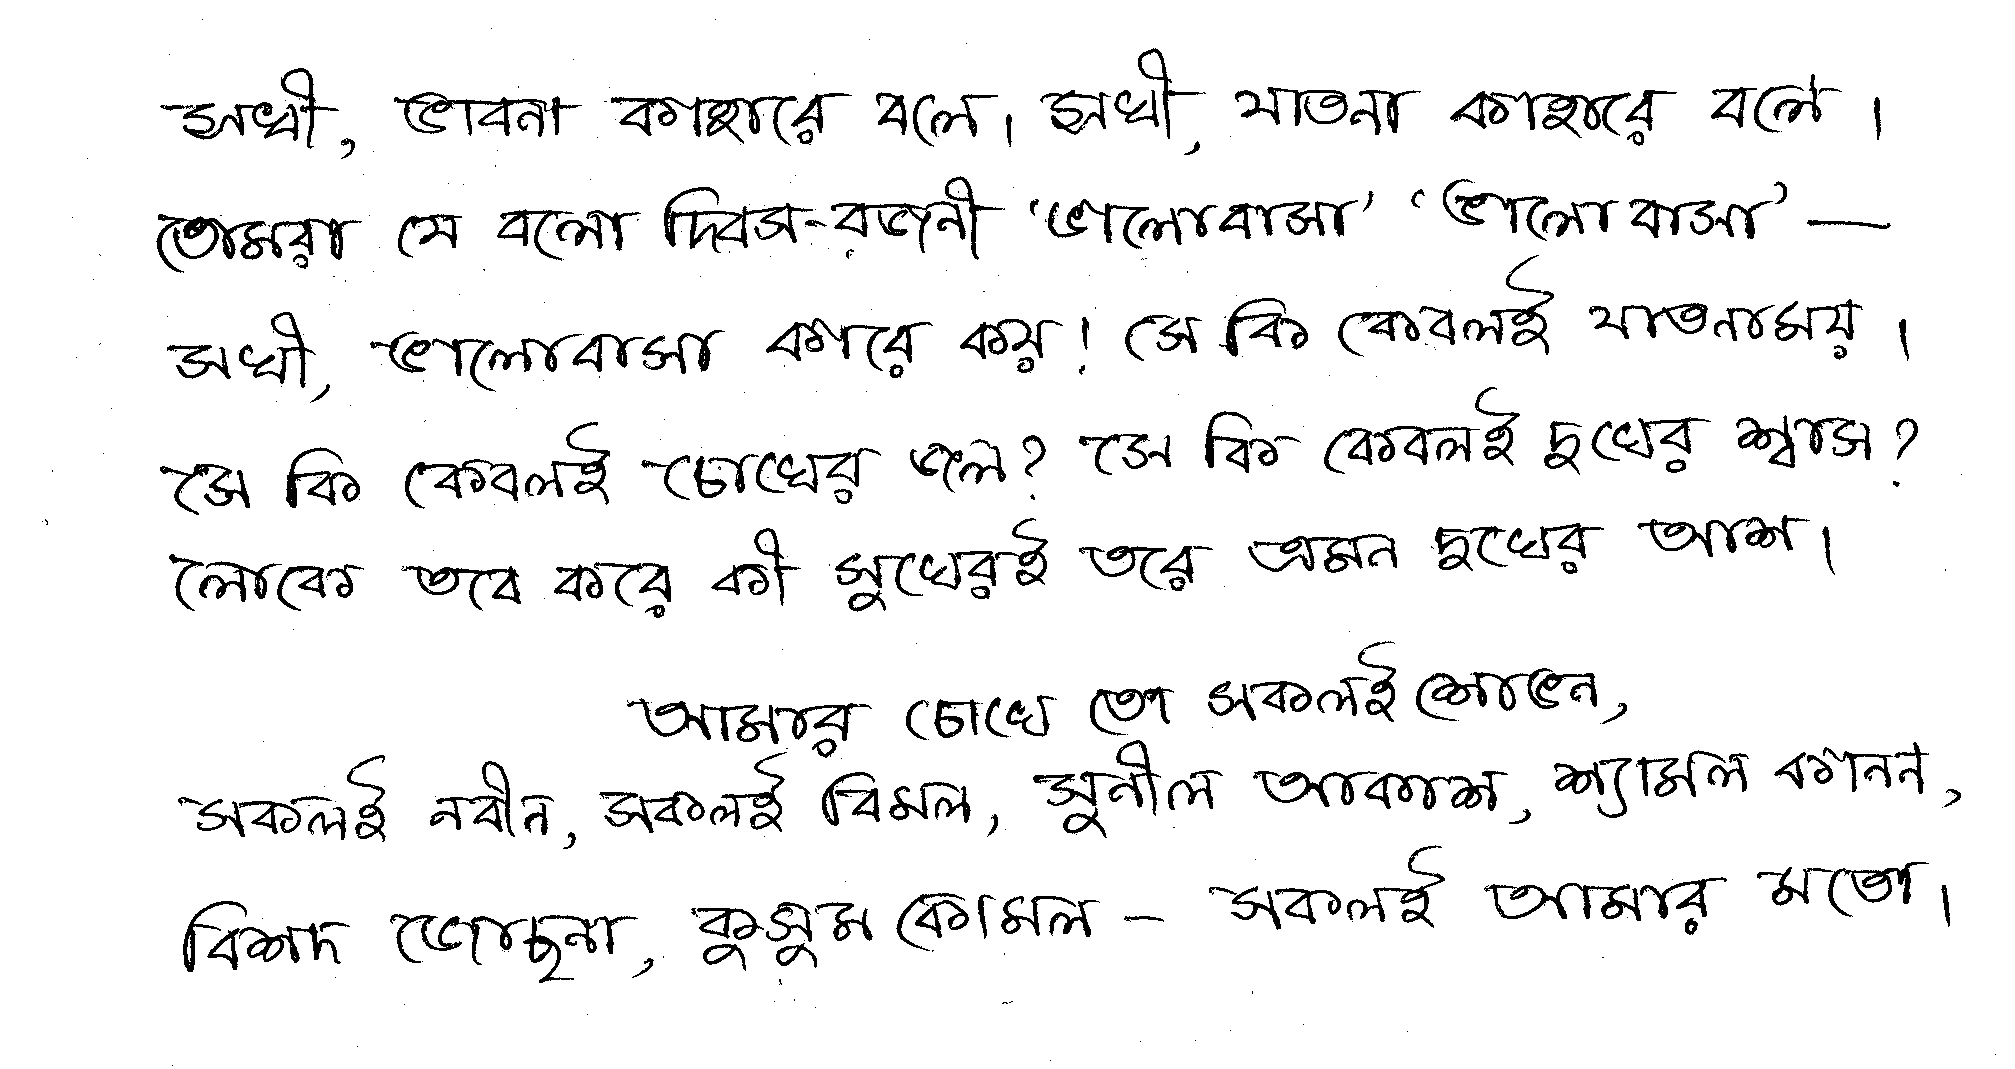 সখী, ভাবনা কাহারে বলে। সখী, যাতনা কাহারে বলে।
তোমরা যে বলো দিবস-রজনী ‘ভালোবাসা’ ‘ভালোবাসা’—
সখী, ভালোবাসা কারে কয়! সে কি কেবলই যাতনাময়।
সে কি কেবলই চোখের জল? সে কি কেবলই দুখের শ্বাস?
লোকে তবে করে কী সুখেরই তরে এমন দুখের আশ।
আমার চোখে তো সকলই শোভন,
সকলই নবীন, সকলই বিমল, সুনীল আকাশ, শ্যামল কানন,
বিশদ জোছনা, কুসুম কোমল – সকলই আমার মতো।